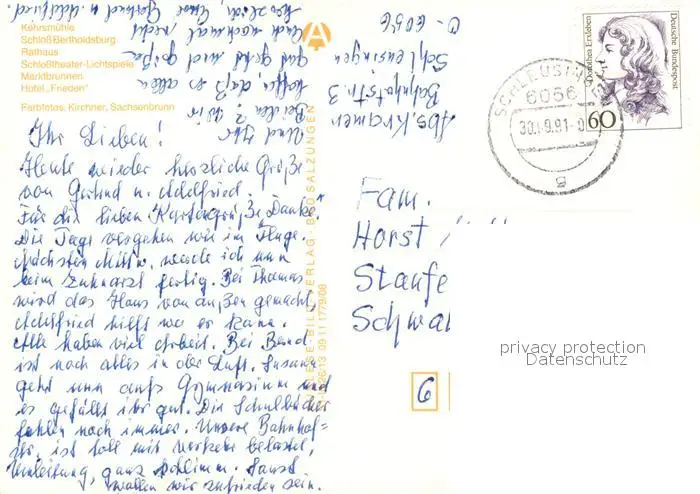 Kehrsmühle
Schloß Bertholdsburg
Rathaus
Schloßtheater-Lichtspiele
Marktbrunnen
Hotel „Frieden“
Farbfotos: Kirchner, Sachsenbrunn
Ihr Lieben!
Heute wieder herzliche Grüße
von Gerlind u. Adelfried.
Für die lieben Kartengrüße Danke.
Die Tage vergehen wie im Fluge.
Nächsten Mittw. werde ich nun
beim Zahnarzt fertig. Bei Thomas
wird das Haus von außen gemacht,
Adelfried hilft wo er kann.
Alle haben viel Arbeit. Bei Bernd
ist noch alles in der Luft. Susann
geht nun aufs Gymnasium und
es gefällt ihr gut. Die Schulbücher
fehlen noch immer. Unsere Bahnhof-
str. ist toll mit Verkehr belastet,
Umleitung, ganz schlimm. Sonst
wollen wir zufrieden sein.
Und Ihr
Beiden? Wir
hoffen, daß es allen
gut geht und grüßen
Euch nochmal recht
herzlich, Eure Gerlind u. Adelfried.
Abs. Kramer
Bahnhofstr. 3
Schleusingen
O-6056
BAD SALZUNGEN
SCHLEUSINGEN
6056
30.-9.91-0
g
Dorothea Erxleben
Deutsche Bundespost
60
Fam.
Horst
Staufe
Schwa
6
privacy protection
Datenschutz